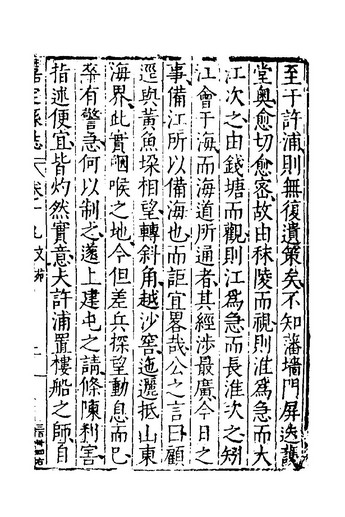 至于許浦則無復遺策矣不知藩墻門屏迭護
堂奧愈切愈密故由秣陵而視則淮為急而大
江次之由錢塘而觀則江為急而長淮次之矧
江會于海而海道所通者其經涉最廣今日之
事備江所以備海也而詎宜畧哉公之言曰顧
逕與黃魚垜相望轉斜角越沙窖迤邐抵山東
海界此實咽喉之地今但差兵探望動息而已
卒有警急何以制之遂上建屯之請條陳利害
指述便宜皆灼然實意夫許浦置樓船之師自
嘉定縣志 卷十九文